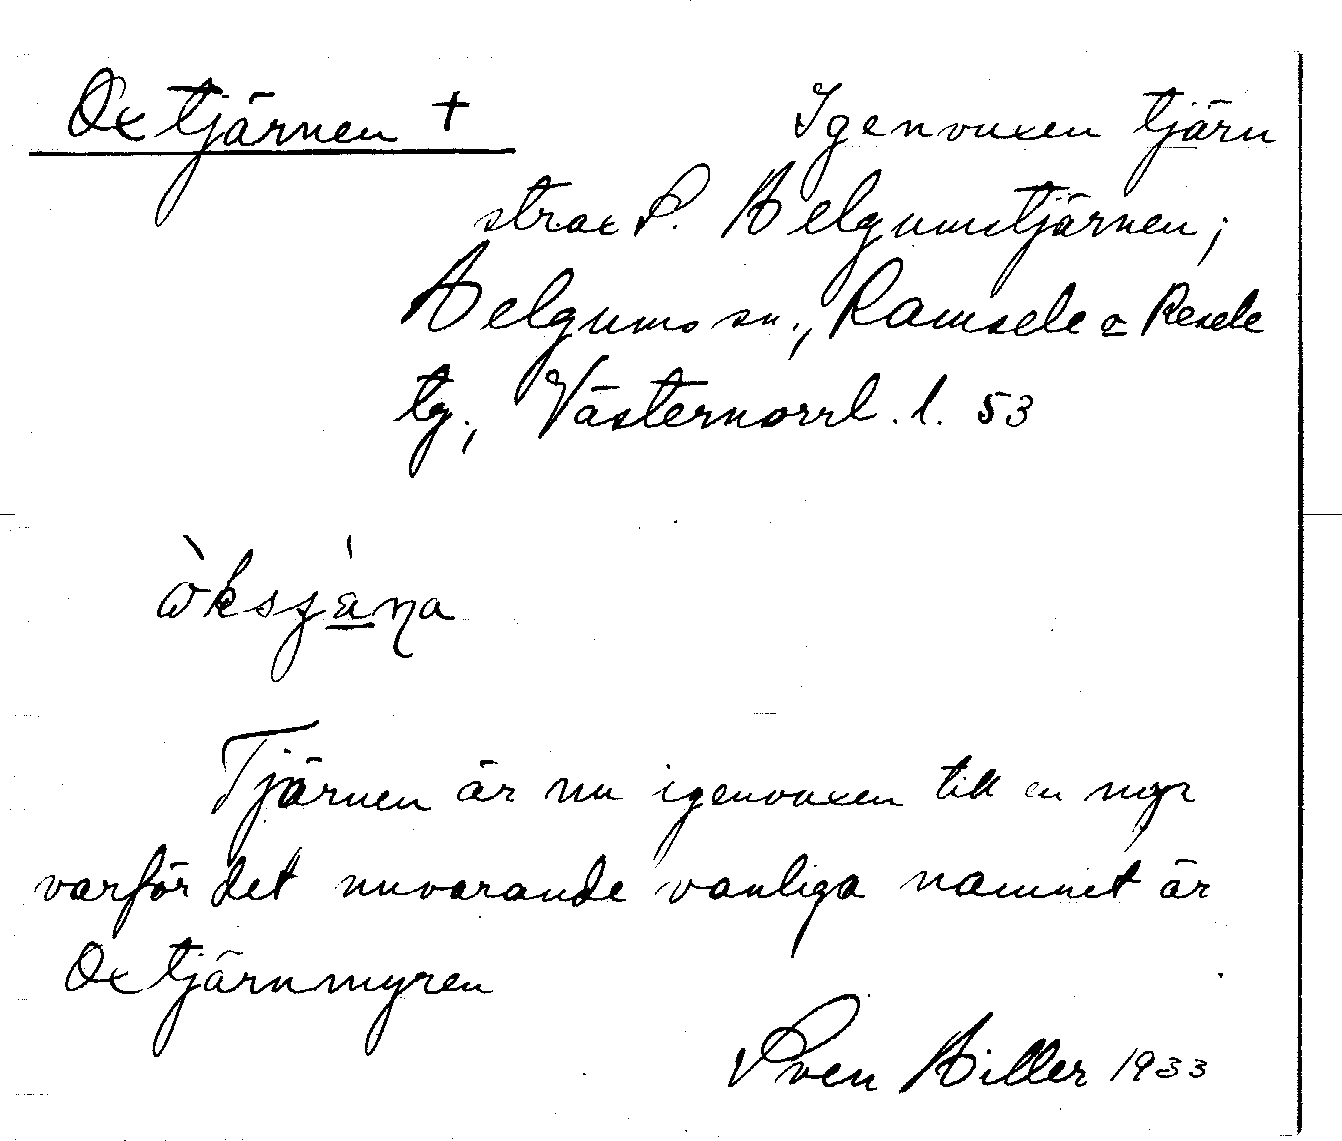 Oxtjärnen +
Igenvuxen tjärn
strax S. Helgumstjärnen;
Helgums sn., Ramsele o Resele
tg., Västernorrl. l. 53
Tjärnen är nu igenvuxen till en myr
varför det nuvarande vanliga namnet är
Oxtjärnmyren
Sven Hiller 1933